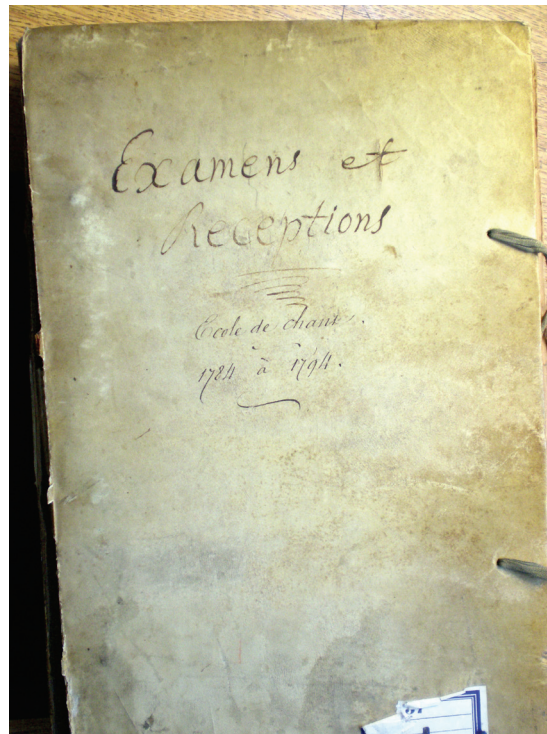 Examens et
Receptions
Ecole de chant.
1784 à 1794.